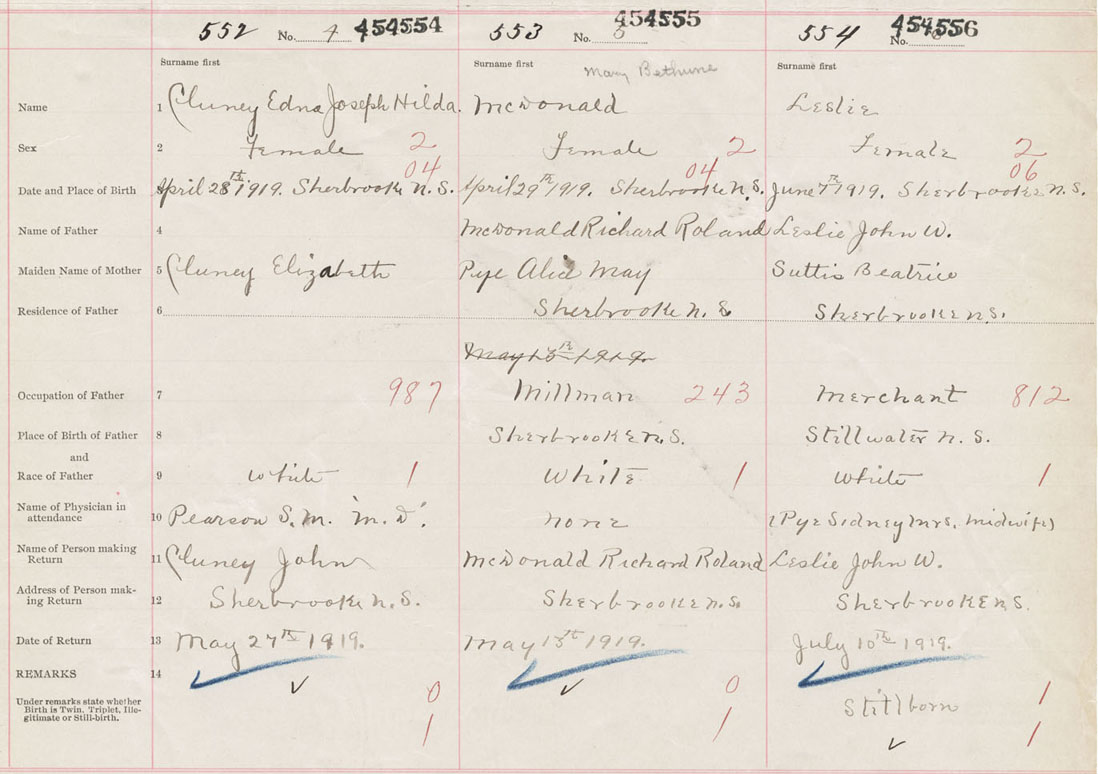 552 No. 4 454554 553 No. 5 454555 554 No. 454556
Surname first Surname first Mary Bethune Surname first
Name 1 Cluney Edna Joseph Hilda. McDonald Leslie
Sex 2 Female 2 Female 2 Female 2
04 04 06
Date and Place of Birth April 28th 1919. Sherbrooke N.S. April 29th 1919. Sherbrooke N.S. June 7th 1919. Sherbrooke N.S.
Name of Father 4 McDonald Richard Roland Leslie John W.
Maiden Name of Mother 5 Cluney Elizabeth Pye Alice May Suttis Beatrice
Residence of Father 6 Sherbrooke N.S Sherbrooke N.S.
May 13th 1919.
Occupation of Father 7 987 Millman 243 Merchant 812
Place of Birth of Father 8 Sherbrooke N.S. Stillwater N.S.
and
Race of Father 9 White 1 White 1 White 1
Name of Physician in
attendance 10 Pearson S. M. "M. D". none (Pye Sidney Mrs. midwife)
Name of Person making
Return 11 Cluney John McDonald Richard Roland Leslie John W.
Address of Person mak-
ing Return 12 Sherbrooke N.S. Sherbrooke N.S. Sherbrooke N.S.
Date of Return 13 May 27th 1919. May 13th 1919. July 10th 1919.
REMARKS 14
Under remarks state whether
Birth is Twin, Triplet, Ille-
gitimate or Still-birth.
0 0 Stillborn 1
1 1 1